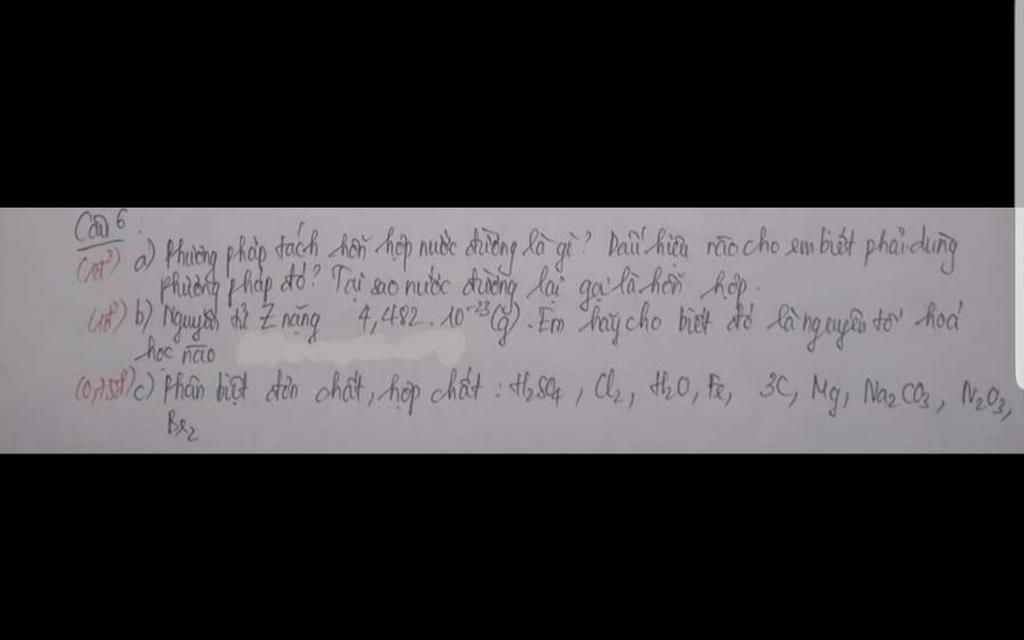 Câu 6:
(1đ) a) Phương pháp tách hỗn hợp nước đường là gì? Dấu hiệu nào cho em biết phải dùng
phương pháp đó? Tại sao nước đường lại gọi là hỗn hợp.
(1đ) b) Nguyên tử Z nặng 4,482.10⁻²³(g). Em hãy cho biết đó là nguyên tố hoá
học nào
(0,75đ) c) Phân biệt đơn chất, hợp chất: H₂SO₄, Cl₂, H₂O, Fe, 3C, Mg, Na₂CO₃, N₂O₃,
Br₂